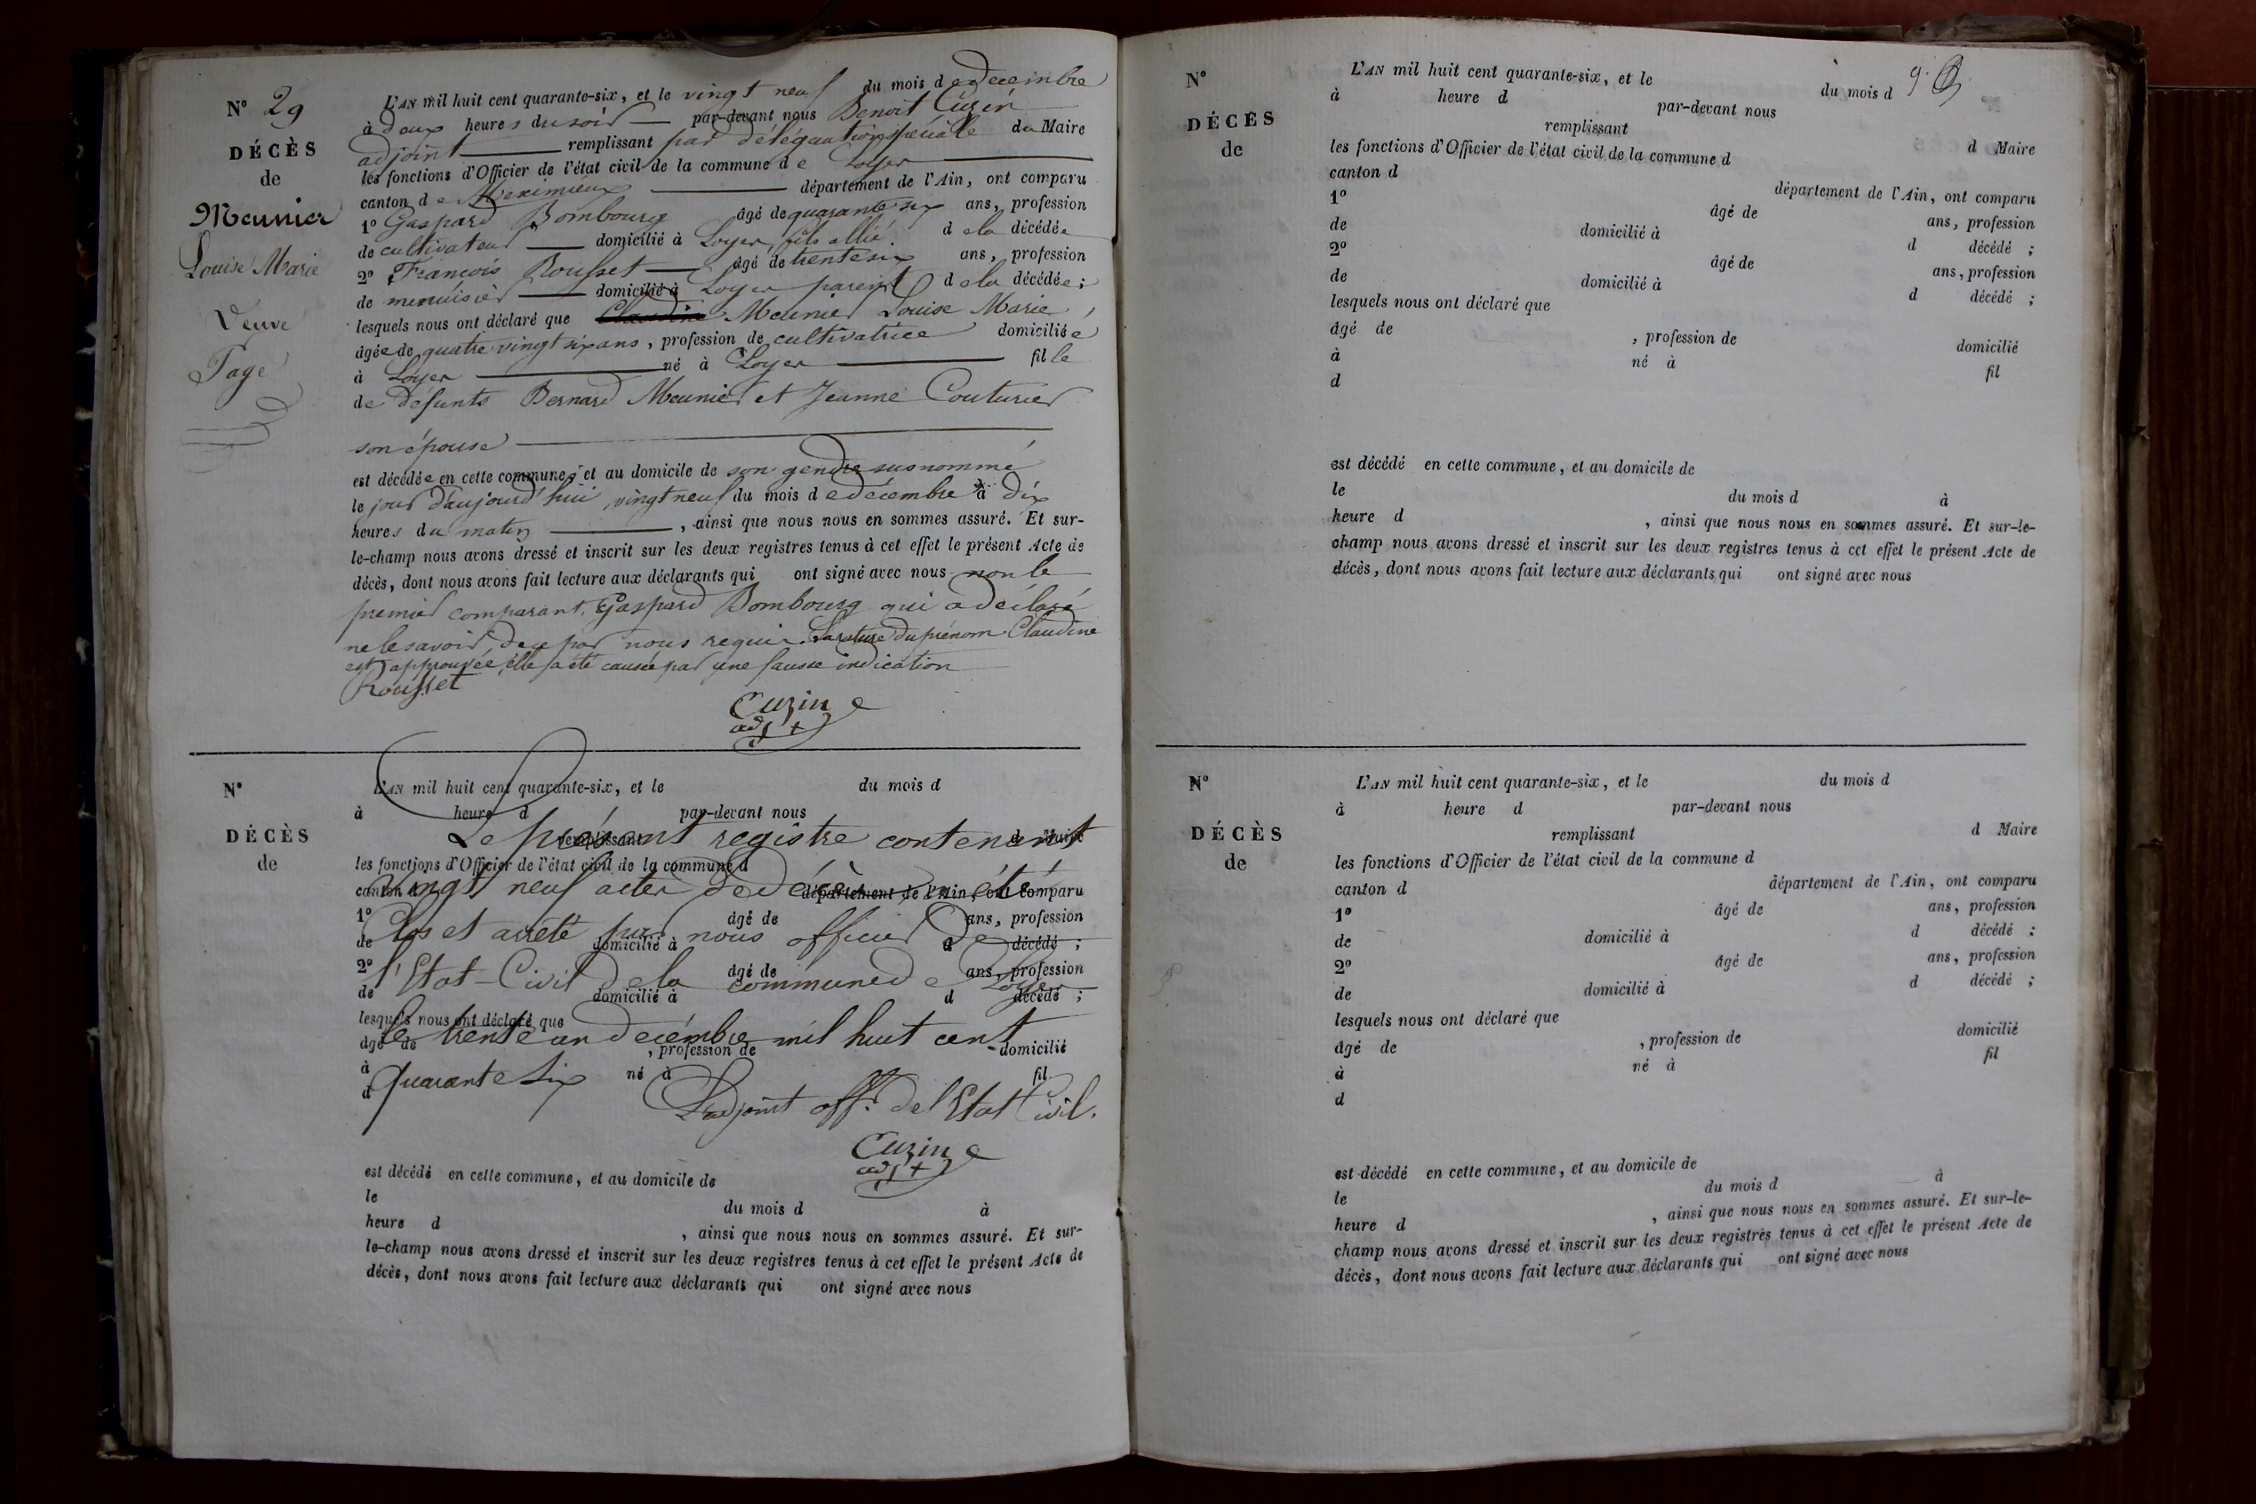 N° 29
DÉCÈS
de
Meunier
Louise Marie
Veuve
Page
L'AN mil huit cent quarante-six, et le vingt neuf du mois de décembre
à deux heures du soir par-devant nous Benoit Cuzin
adjoint remplissant par délégation spéciale du Maire
les fonctions d'Officier de l'état civil de la commune de Loyer
canton de Meximieux département de l'Ain, ont comparu
1° Gaspard Bombourg âgé de quarante six ans, profession
de cultivateur domicilié à Loyer, fils allié. de la décédée
2° François Rousset âgé de trente six ans, profession
de menuisier domicilié à Loyer parent de la décédée ;
lesquels nous ont déclaré que Claudine Meunier Louise Marie,
âgée de quatre vingt six ans, profession de cultivatrice domiciliée
à Loyer né à Loyer fille
de défunts Bernard Meunier et Jeanne Couturier
son épouse
est décédée en cette commune, et au domicile de son gendre susnommé
le jour d'aujourd'hui vingt neuf du mois de décembre à dix
heures du matin , ainsi que nous nous en sommes assuré. Et sur-
le-champ nous avons dressé et inscrit sur les deux registres tenus à cet effet le présent Acte de
décès, dont nous avons fait lecture aux déclarants qui ont signé avec nous non le
premier comparant, Gaspard Bombourg qui a déclaré
ne le savoir de ce par nous requis. La rature du prénom Claudine
est approuvée, elle a été causée par une fausse indication
Rousset
Cuzin
adjt
N°
DÉCÈS
de
L'AN mil huit cent quarante-six, et le du mois d
à heure d par-devant nous
remplissant d Maire
Le présent registre contenant
les fonctions d'Officier de l'état civil de la commune d
canton d département de l'Ain, ont comparu
vingt neuf actes de décès a été
1° âgé de ans, profession
Clos et arrêté par nous officier de
de domicilié à d décédé ;
2° âgé de ans, profession
l'Etat-Civil de la commune de Loyer
de domicilié à d décédé ;
lesquels nous ont déclaré que
le trente un décembre mil huit cent
âgé de , profession de domicilié
à né à fil
quarante six
d
L'adjoint off. de l'Etat Civil.
Cuzin
adjt
est décédé en cette commune, et au domicile de
le du mois d à
heure d , ainsi que nous nous en sommes assuré. Et sur-
le-champ nous avons dressé et inscrit sur les deux registres tenus à cet effet le présent Acte de
décès, dont nous avons fait lecture aux déclarants qui ont signé avec nous
9.
N°
DÉCÈS
de
L'AN mil huit cent quarante-six, et le du mois d
à heure d par-devant nous
remplissant d Maire
les fonctions d'Officier de l'état civil de la commune d
canton d département de l'Ain, ont comparu
1° âgé de ans, profession
de domicilié à d décédé ;
2° âgé de ans, profession
de domicilié à d décédé ;
lesquels nous ont déclaré que
âgé de , profession de domicilié
à né à fil
d
est décédé en cette commune, et au domicile de
le du mois d à
heure d , ainsi que nous nous en sommes assuré. Et sur-le-
champ nous avons dressé et inscrit sur les deux registres tenus à cet effet le présent Acte de
décès, dont nous avons fait lecture aux déclarants qui ont signé avec nous
N°
DÉCÈS
de
L'AN mil huit cent quarante-six, et le du mois d
à heure d par-devant nous
remplissant d Maire
les fonctions d'Officier de l'état civil de la commune d
canton d département de l'Ain, ont comparu
1° âgé de ans, profession
de domicilié à d décédé ;
2° âgé de ans, profession
de domicilié à d décédé ;
lesquels nous ont déclaré que
âgé de , profession de domicilié
à né à fil
d
est décédé en cette commune, et au domicile de
le du mois d à
heure d , ainsi que nous nous en sommes assuré. Et sur-le-
champ nous avons dressé et inscrit sur les deux registres tenus à cet effet le présent Acte de
décès, dont nous avons fait lecture aux déclarants qui ont signé avec nous